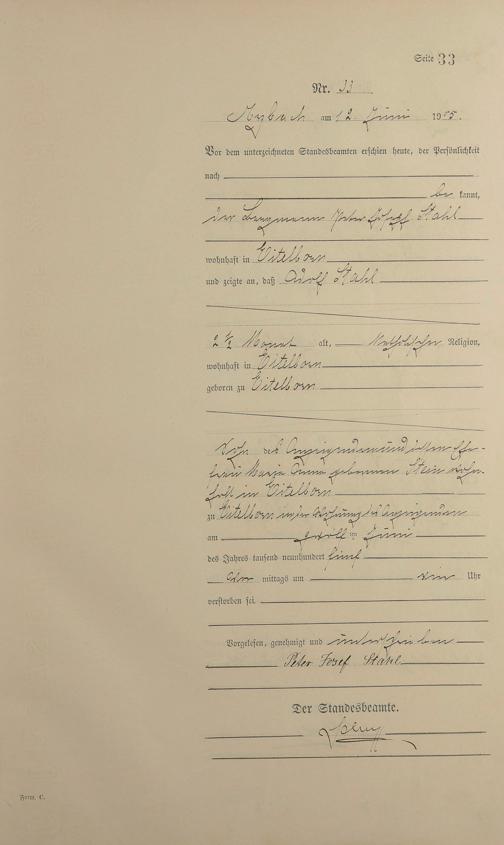 Seite 33
Nr. 33
Arzbach am 12 Juni 1905.
Vor dem unterzeichneten Standesbeamten erschien heute, der Persönlichkeit
nach
be kannt,
der Bergmann Peter Josef Stahl
wohnhaft in Eitelborn
und zeigte an, daß Adolf Stahl
2 ½ Monat alt, katholischer Religion,
wohnhaft in Eitelborn
geboren zu Eitelborn
Sohn des Anzeigenden und dessen Ehe-
frau Maria Anna geborenen Stein wohn-
haft in Eitelborn
zu Eitelborn in der Wohnung des Anzeigenden
am zwölften Juni
des Jahres tausend neunhundert fünf
mittags um Uhr
verstorben sei.
Vorgelesen, genehmigt und unterschrieben
Peter Josef Stahl
Der Standesbeamte.
Form. C.